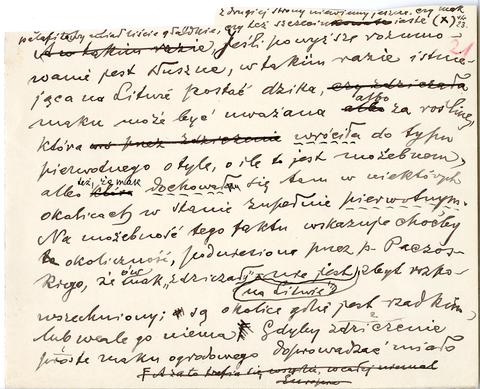 z drugiej strony niewiemy jeszcze, czy mak
petafitody miał liście gładkie, czy też szczecin iaste (x)
21
A w takim razie Jeśli powyższe rozumo-
wanie jest słuszne, w takim razie istnie-
jąca na Litwie postać dzika, czy zdziczała
maku może być uważana albo za roślinę,
która wróciła do typu
pierwotnego o tyle, o ile to jest możebnem,
albo też, że mak dochował się tam w niektórych
okolicach w stanie zupełnie pierwotnym.
Na możebność tego faktu wskazuje choćby
ta okoliczność, podniesiona przez p. Paczos-
kiego, że ów mak „zdziczały" nie jest zbyt rozpo-
na Litwie
wszechniony; są okolice gdzie jest rzadkim,
lub wcale go niema. Gdyby zdziczenie
proste maku ogrodowego doprowadzać miało